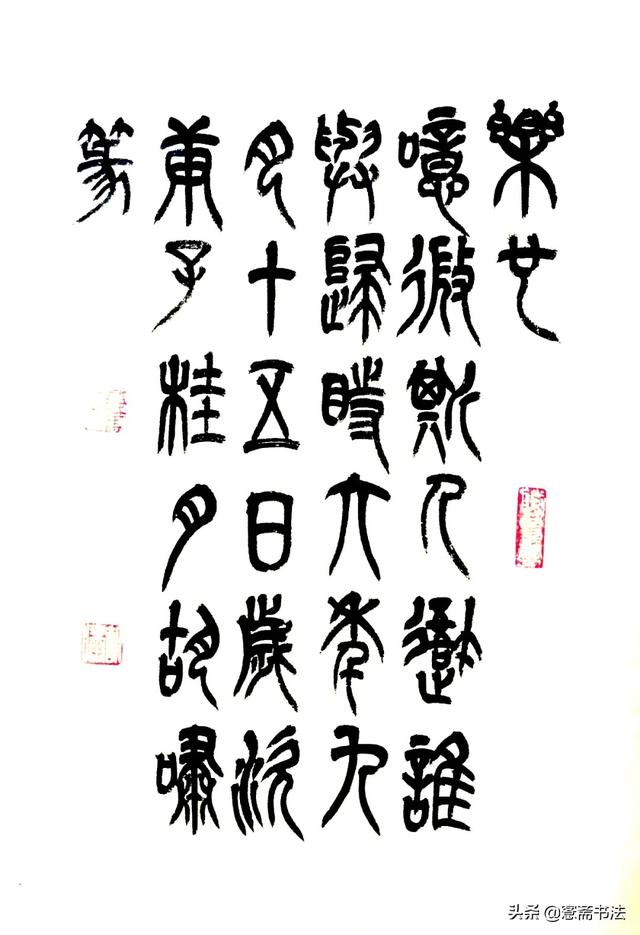 樂也
噫微斯人吾誰
與歸時六年九
月十五日歲次
庚子桂月胡嘯
篆
头条 @愙斋书法